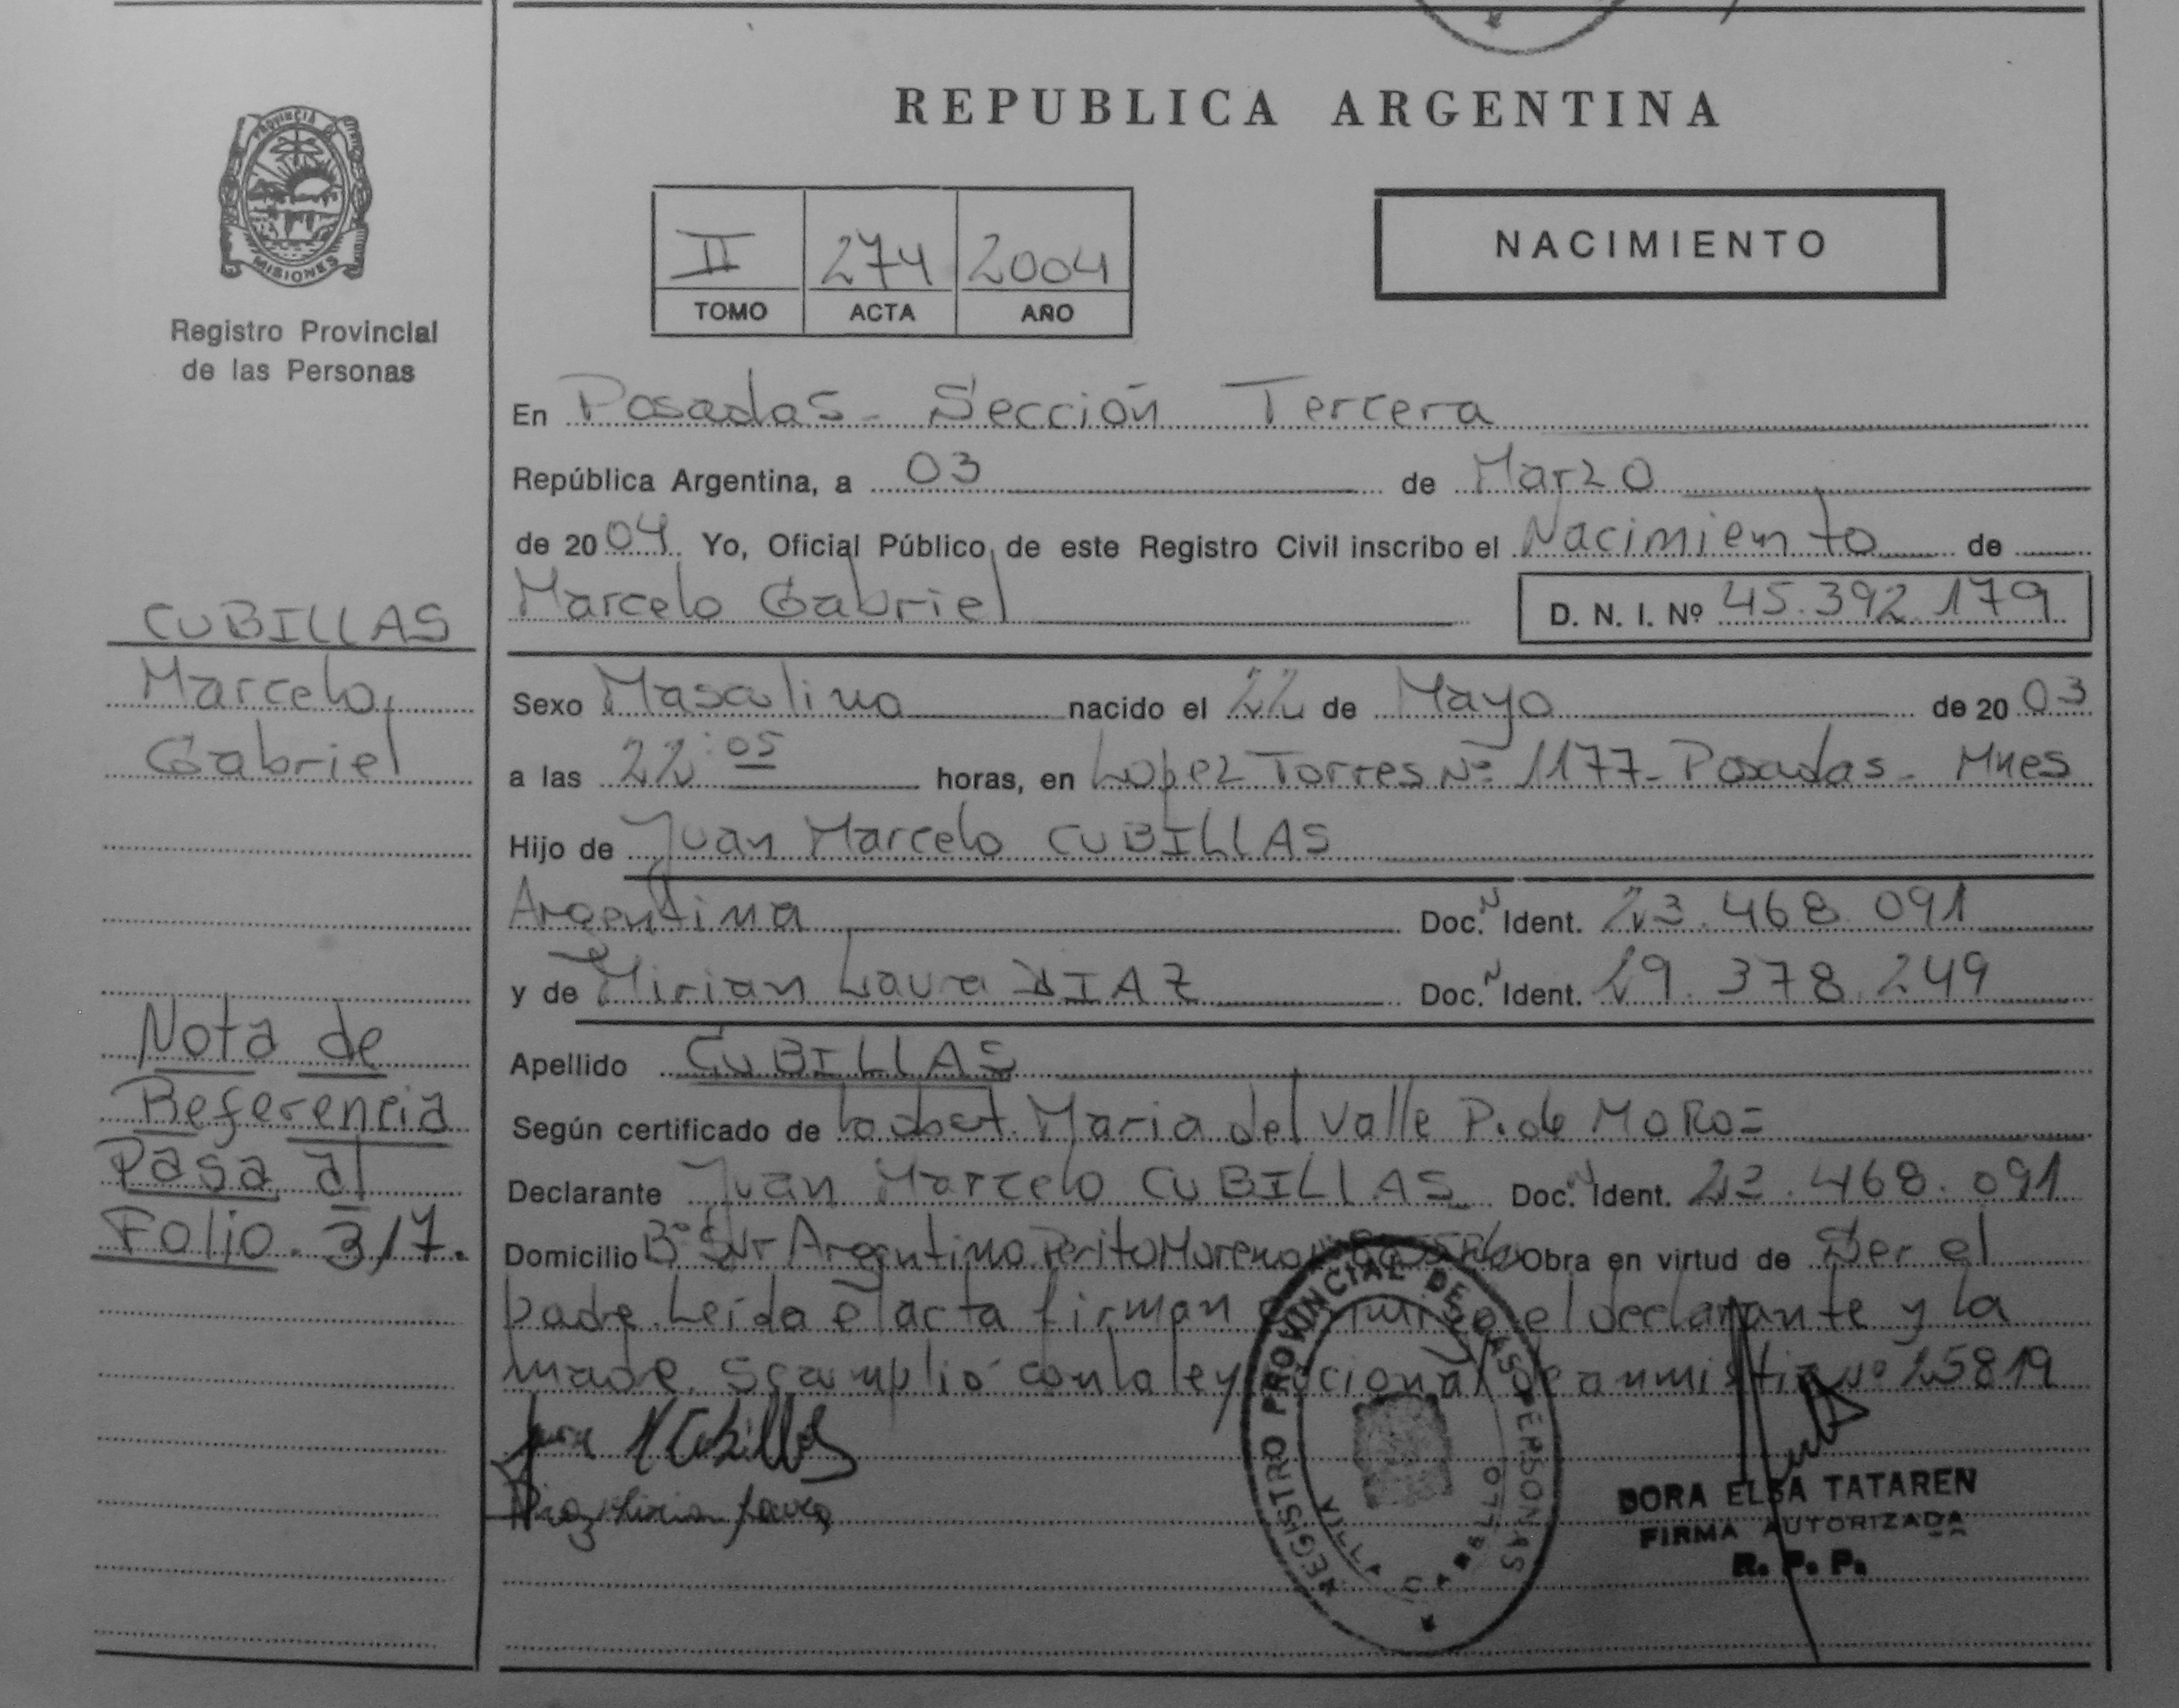 REPUBLICA ARGENTINA
PROVINCIA DE
MISIONES
Registro Provincial
de las Personas
II 274 2004
TOMO ACTA AÑO
NACIMIENTO
En Posadas - Sección Tercera
República Argentina, a 03 de Marzo
de 2004 Yo, Oficial Público de este Registro Civil inscribo el Nacimiento de
Marcelo Gabriel D. N. I. Nº 45.392.179
CUBILLAS
Marcelo
Gabriel
Sexo Masculino nacido el 22 de Mayo de 2003
a las 22:05 horas, en Lopez Torres Nº 1177- Posadas - Mnes
Hijo de Juan Marcelo CUBILLAS
Argentina Doc. N Ident. 23.468.091
y de Mirian Laura DIAZ Doc. N Ident. 29.378.249
Apellido CUBILLAS
Según certificado de Maria del Valle P. de MORO=
Declarante Juan Marcelo CUBILLAS Doc. N Ident. 23.468.091
Domicilio Bº Sur Argentino Perito Moreno Obra en virtud de Ser el
padre. Leída el acta firman el declarante y la
madre. Se cumplió con la ley nacional de amnistia Nº 25819
Nota de
Referencia
Pasa al
Folio. 317.
Juan M Cubillas
Diaz Mirian Laura
REGISTRO PROVINCIAL DE LAS PERSONAS
VILLA CABELLO
DORA ELSA TATAREN
FIRMA AUTORIZADA
R. P. P.